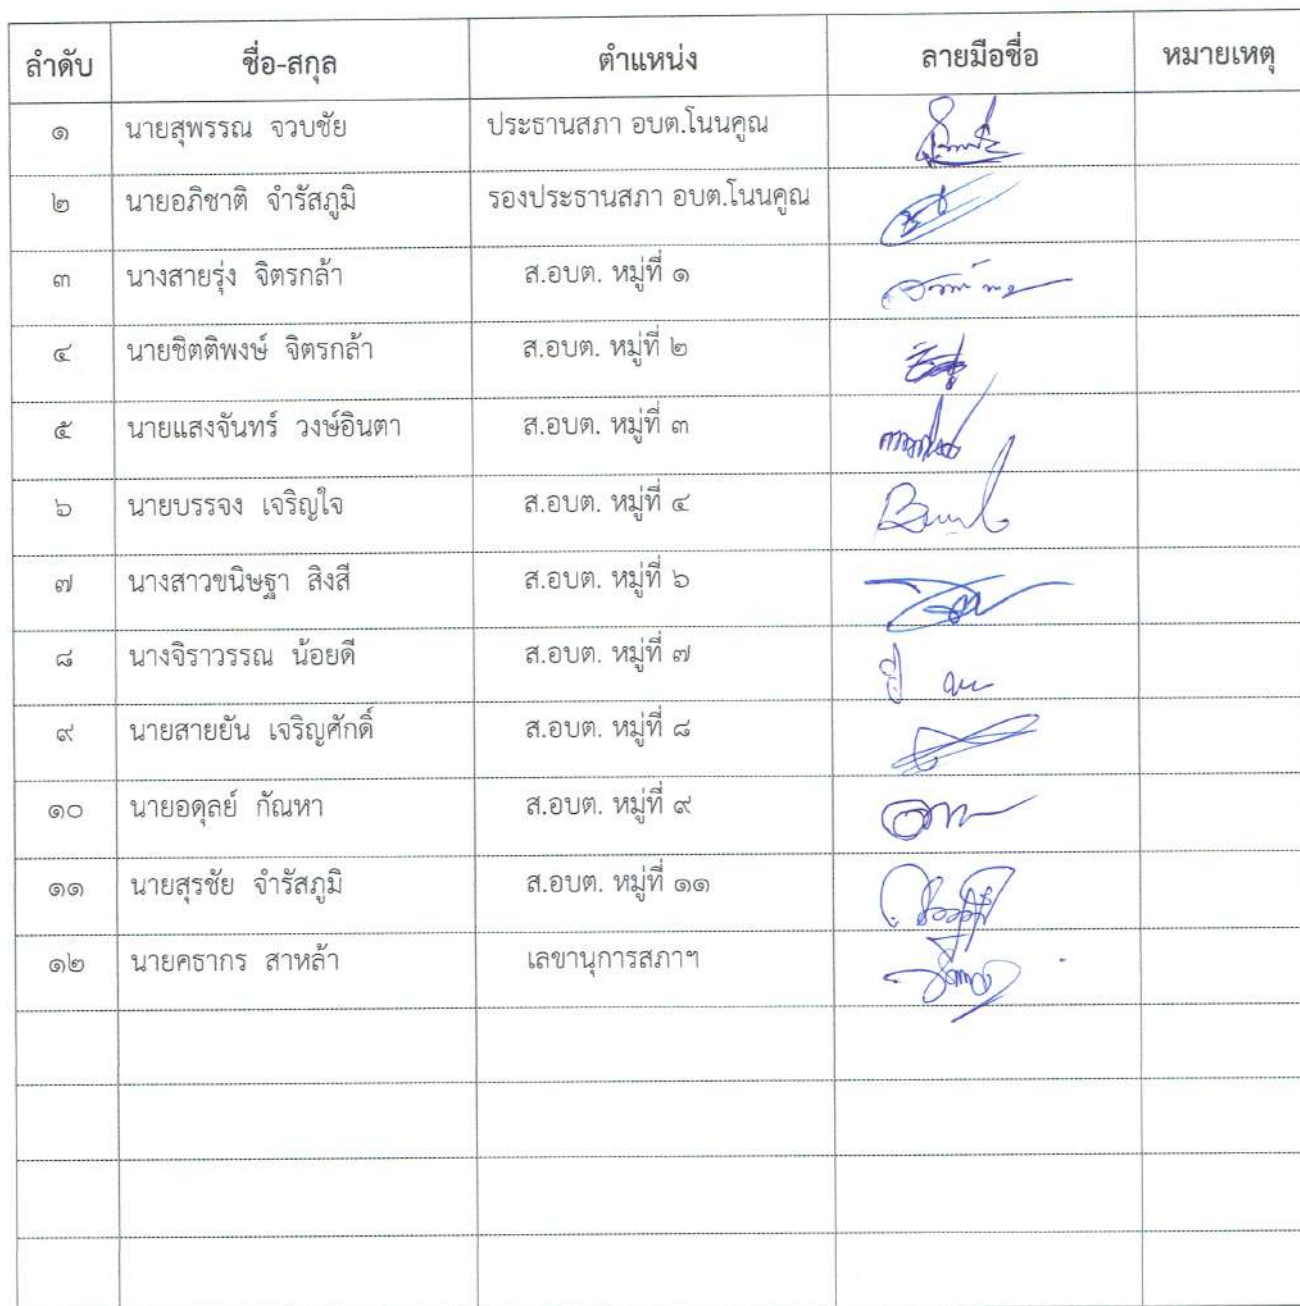 ลำดับ ชื่อ-สกุล ตำแหน่ง ลายมือชื่อ หมายเหตุ
๑ นายสุพรรณ จวบชัย ประธานสภา อบต.โนนคูณ
๒ นายอภิชาติ จำรัสภูมิ รองประธานสภา อบต.โนนคูณ
๓ นางสายรุ่ง จิตรกล้า ส.อบต. หมู่ที่ ๑
๔ นายชิตติพงษ์ จิตรกล้า ส.อบต. หมู่ที่ ๒
๕ นายแสงจันทร์ วงษ์อินตา ส.อบต. หมู่ที่ ๓
๖ นายบรรจง เจริญใจ ส.อบต. หมู่ที่ ๔
๗ นางสาวขนิษฐา สิงสี ส.อบต. หมู่ที่ ๖
๘ นางจิราวรรณ น้อยดี ส.อบต. หมู่ที่ ๗
๙ นายสายยัน เจริญศักดิ์ ส.อบต. หมู่ที่ ๘
๑๐ นายอดุลย์ กัณหา ส.อบต. หมู่ที่ ๙
๑๑ นายสุรชัย จำรัสภูมิ ส.อบต. หมู่ที่ ๑๑
๑๒ นายคธากร สาหล้า เลขานุการสภาฯ